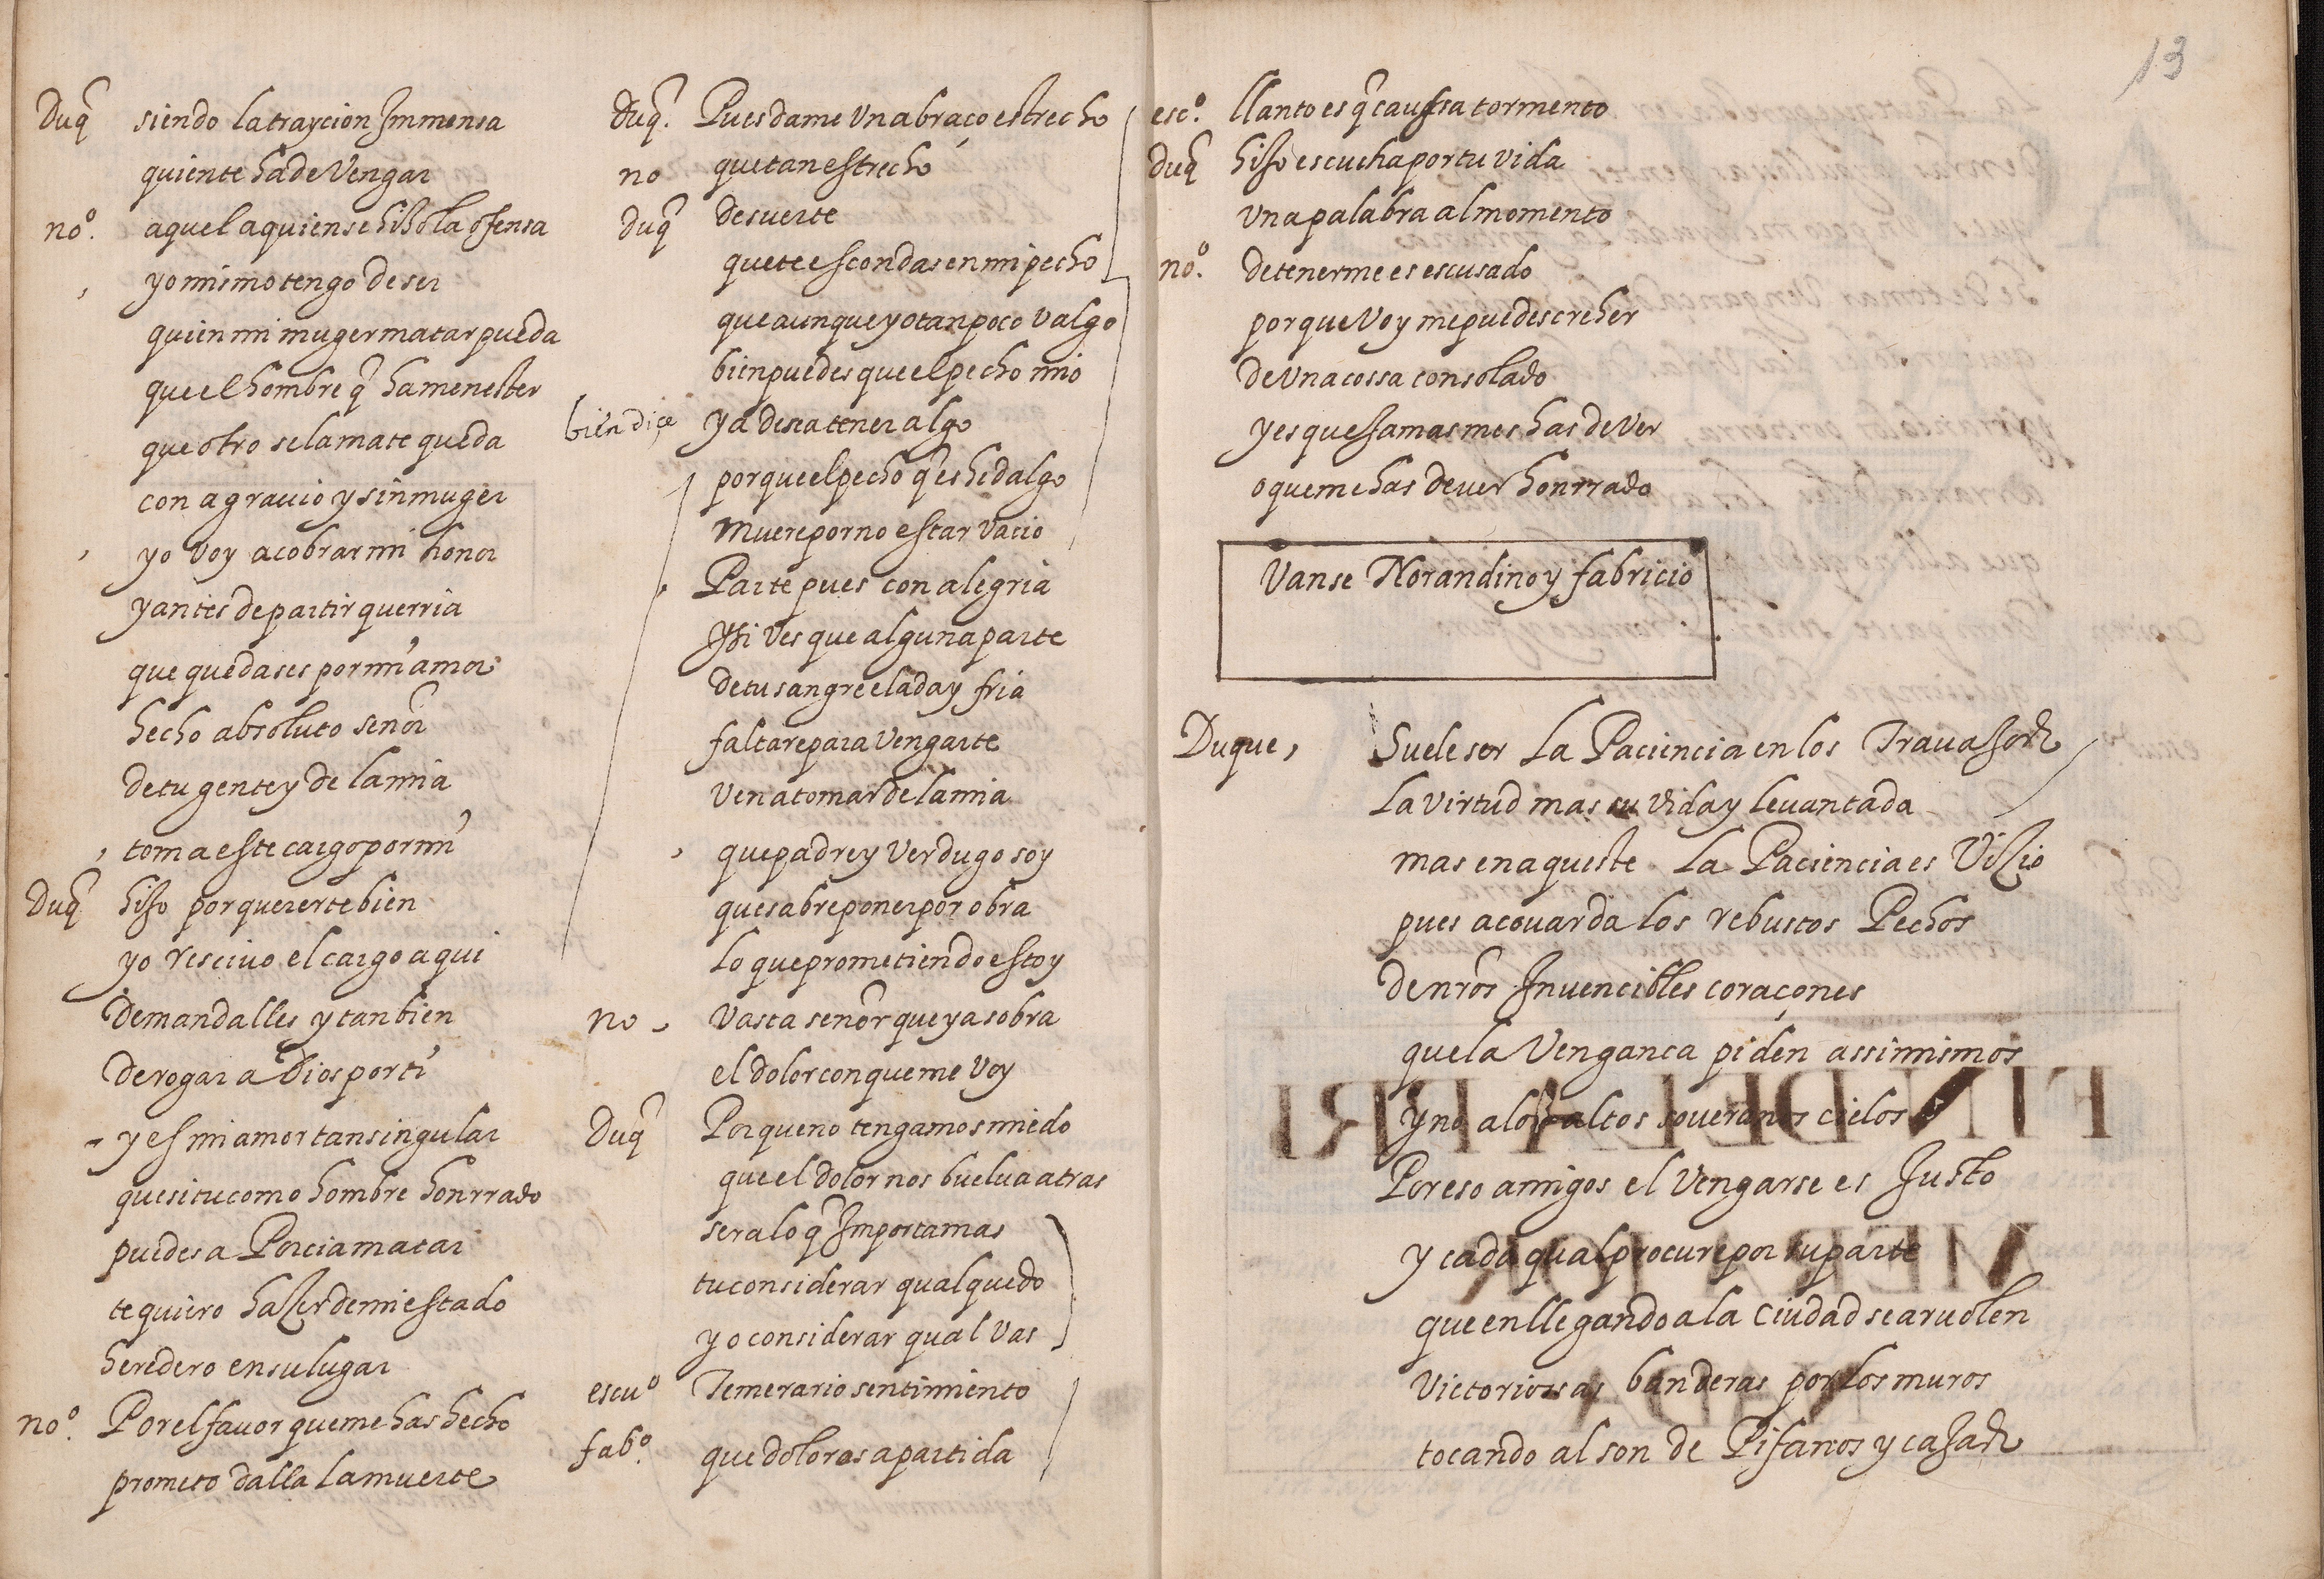 Duq̃ siendo la traycion Jmmensa
quien te ha de Vengar
noº. aquel a quien se hiso la ofensa
yo mismo tengo de ser
quien mi muger matar pueda
que el hombre q̃ ha menester
que otro se la mate queda
con agrauio y sin muger
yo voy a cobrar mi honor
y antes de partir querria
que quedases por mi amor
hecho absoluto señor
de tu gente y de la mia
toma este cargo por mi
Duq̃ hijo por quererte bien
yo resciuo el cargo aqui
de mandalles y tanbien
de rogar a Dios por ti
y es mi amor tan singular
que si tu como hombre honrrado
puedes a Porcia matar
te quiero hazer de mi estado
heredero en su lugar
noº. Por el fauor que me has hecho
prometo dalla la muerte
Duq̃. Pues dame vn abraço estrecho
no que tan estrecho
Duq̃ de suerte
que te escondas en mi pecho
que aunque yo tan poco valgo
bien puedes que el pecho mio
bien diçe ya desea tener algo
porque el pecho q̃ es hidalgo
muere por no estar vacio
Parte pues con alegria
Y si ves que alguna parte
de tu sangre elada y fria
faltare para vengarte
ven a tomar de la mia
que padre y verdugo soy
que sabre poner por obra
Lo que prometiendo estoy
no vasta señor que ya sobra
el dolor con que me voy
Duq̃ Por que no tengamos miedo
que el dolor nos buelua atras
sera lo q̃ Jmporta mas
tu considerar qual quedo
yo considerar qual vas
escuº Temerario sentimiento
fabº. que dolorosa partida
13
escº. llanto es q̃ caussa tormento
duq̃ hijo escucha por tu vida
vna palabra al momento
noº. detenerme es escusado
por que voy me puedes creher
de vna cossa consolado
y es que jamas mes has de ver
o que me has de ver honrrado
Vanse Norandino y fabricio
Duque, Suele ser La Paciencia en los Trauajos
La virtud mas su vida y leuantada
mas en aqueste La Paciencia es Vizio
pues acouarda los rebustos Pechos
de nr̃os Jnuencibles coraçones
que la Vengança piden assi mismos
y no a los altos soueranos cielos
Por eso amigos el vengarse es Justo
y cada qual procure por su parte
que en llegando a la Ciudad se aruolen
victoriosas banderas por los muros
tocando al son de Pifanos y cajas